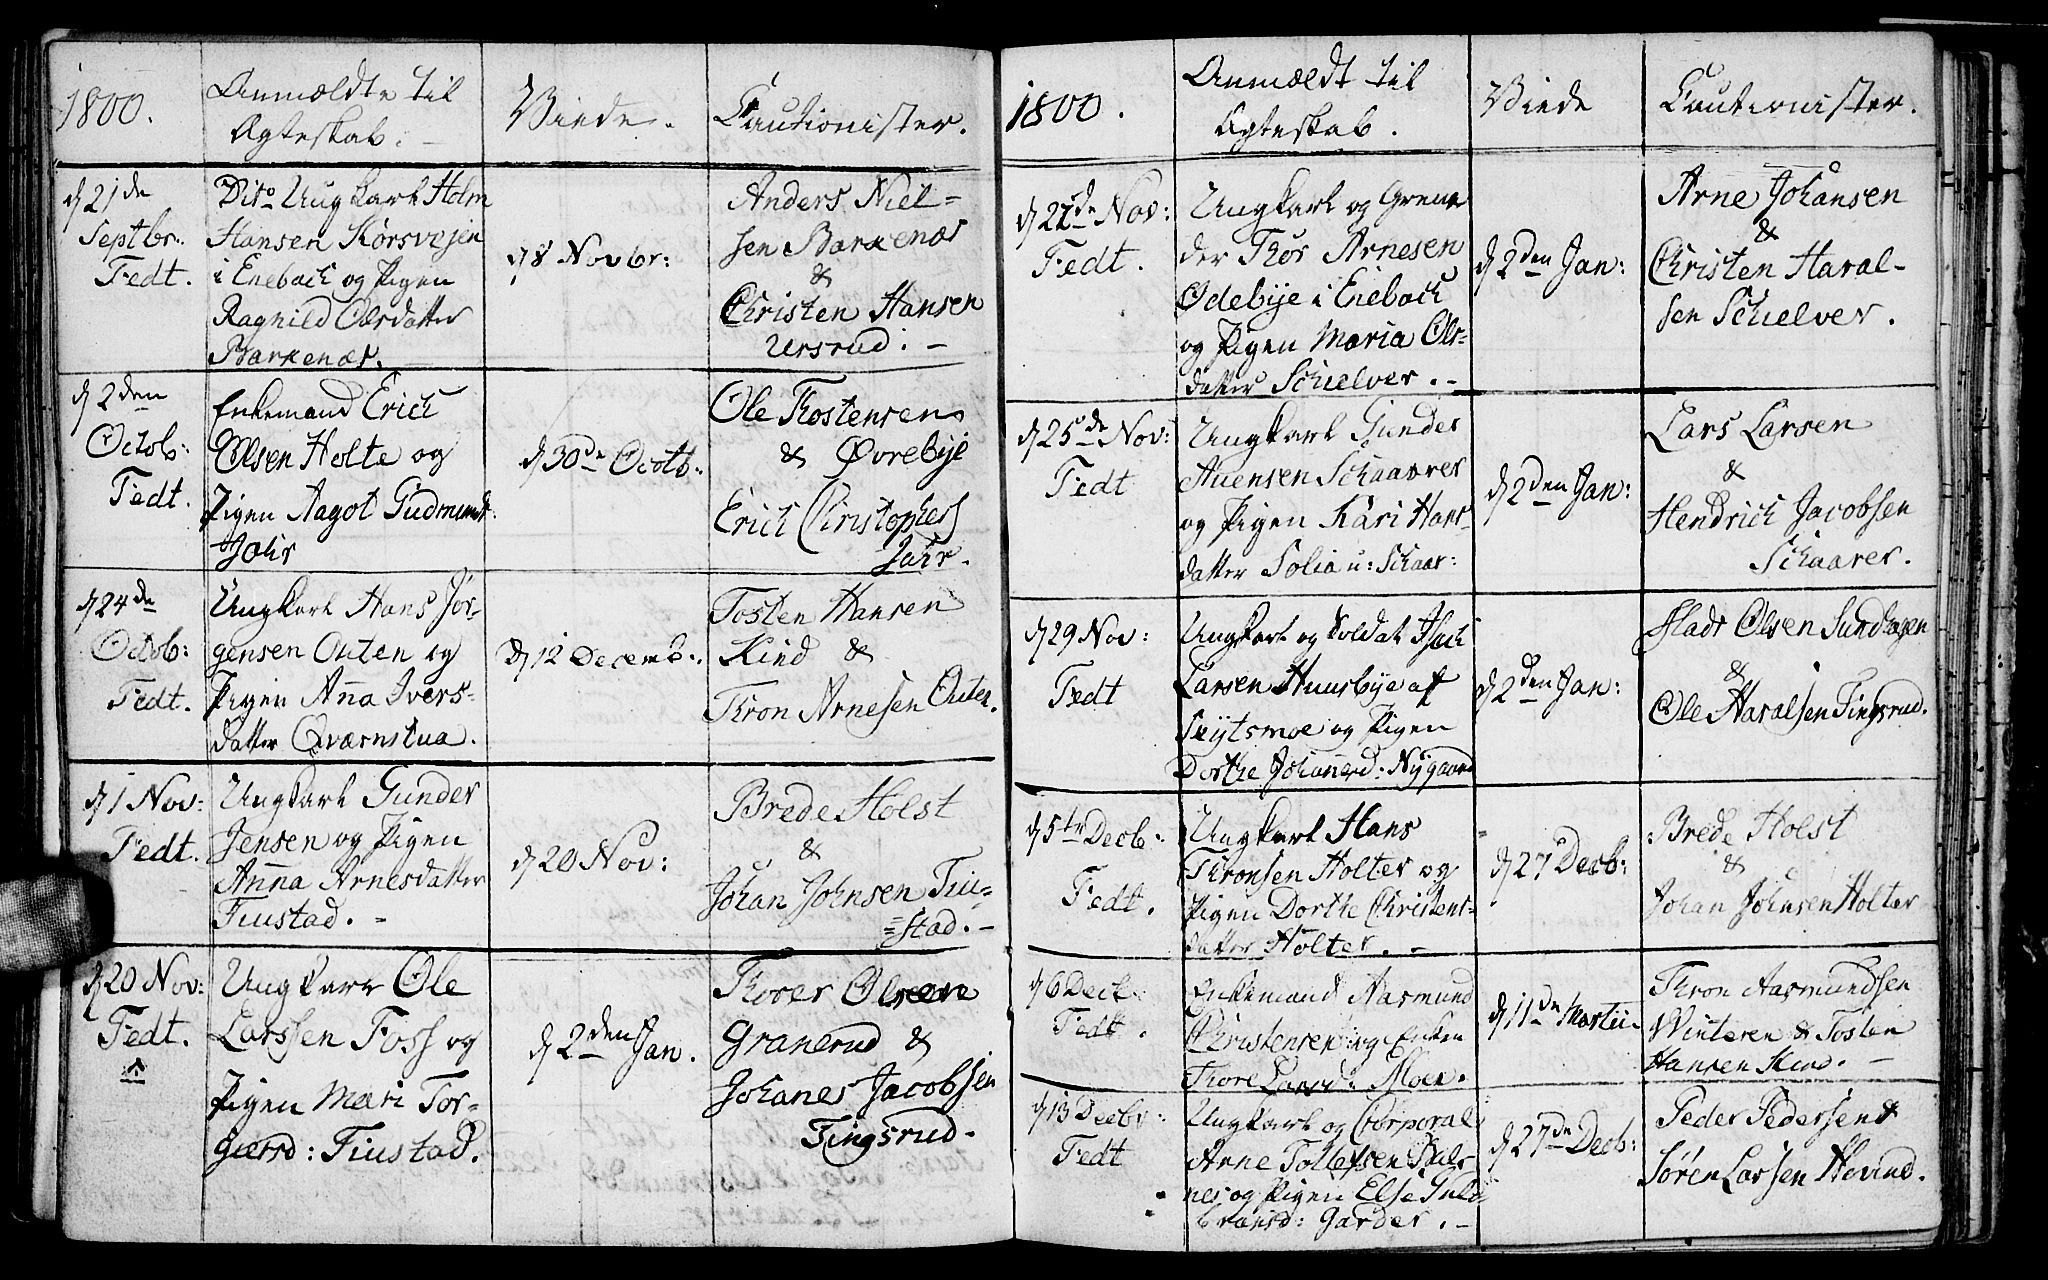 1800.
Anmeldte til
Ægteskab.
Viede.
Cautionister.
d 21de
Septbr:
Fedt.
Dito Ungkarl Holm
Hansen Kørsvejen
i Enebach og Pigen
Ragnild Olsdatter
Barkenæs.
d 8 Novbr:
Anders Niel=
sen Barkenæs
&
Christen Hansen
Ursrud. -
d 2den
Octob:
Fedt.
Enkemand Erich
Olsen Holte og
Pigen Aagot Gudmunds
Jahr
d 30de Octb:
Ole Thostensen
& Øvrebye
Erich Christophers
Jahr.
d 24de
Octob:
Fedt.
Ungkarl Hans Jør-
gensen Outen og
Pigen Anna Ivers-
datter Qværnstua.
d 12 Decemb:
Tosten Hansen
Kind &
Thron Arnesen Outen.
d 1 Nov:
Fedt.
Ungkarl Gunder
Jensen og Pigen
Anna Arnesdatter
Tiustad. -
d 20 Nov:
Brede Holst
&
Johan Johnsen Tiu=
=stad. -
d 20 Nov:
Fedt.
Ungkarl Ole
Larssen Foss og
Pigen Mari Tor-
giersd: Tiustad.
d 2den Jan.
Thorer Olsen
Granerud &
Johanes Jacobsen
Tingsrud.
1800.
Anmeldt til
Ægteskab.
Viede
Cautionister.
d 22de Nov:
Fedt.
Ungkarl og Grena
der Thor Arnesen
Ødebye i Enebach
og Pigen Maria Ols-
datter Schielver. -
d 2den Jan:
Arne Johansen
&
Christen Haral-
sen Schielver.
d 25de Nov:
Fedt
Ungkarl Gunder
Auensen Schaarer
og Pigen Kari Hans-
datter Solia u: Schaar:
d 2den Jan:
Lars Larsen
&
Hendrich Jacobsen
Schaarer.
d 29 Nov:
Fedt
Ungkarl og Soldat Isach
Larsen Huusbye af
og Pigen
Dorthe Johannesd: Nygaard
d 2den Jan:
Olsen Sundhagen
&
Ole Haralsen Tingsrud.
d 5te Decb:
Fedt.
Ungkarl Hans
Thronsen Holter og
Pigen Dorthe Christens-
datter Holter. -
d 27 Decb:
Brede Holst
&
Johan Johnsen Holter
d 6 Decb:
Fedt.
Enkemand Aasmund
Christensen og Enken
Thore Larsd: Moen.
d 11de Martii.
Thron Aasmundsen
Winteren & Tosten
Hansen Kind. -
d 13 Decbr:
Fedt
Ungkarl og Corporal
Arne Tollefsen Bal-
nes og Pigen Else Gul
bransd: Garder. -
d 27de Decb:
Peder Pedersen &
Søren Larssen Hovind.